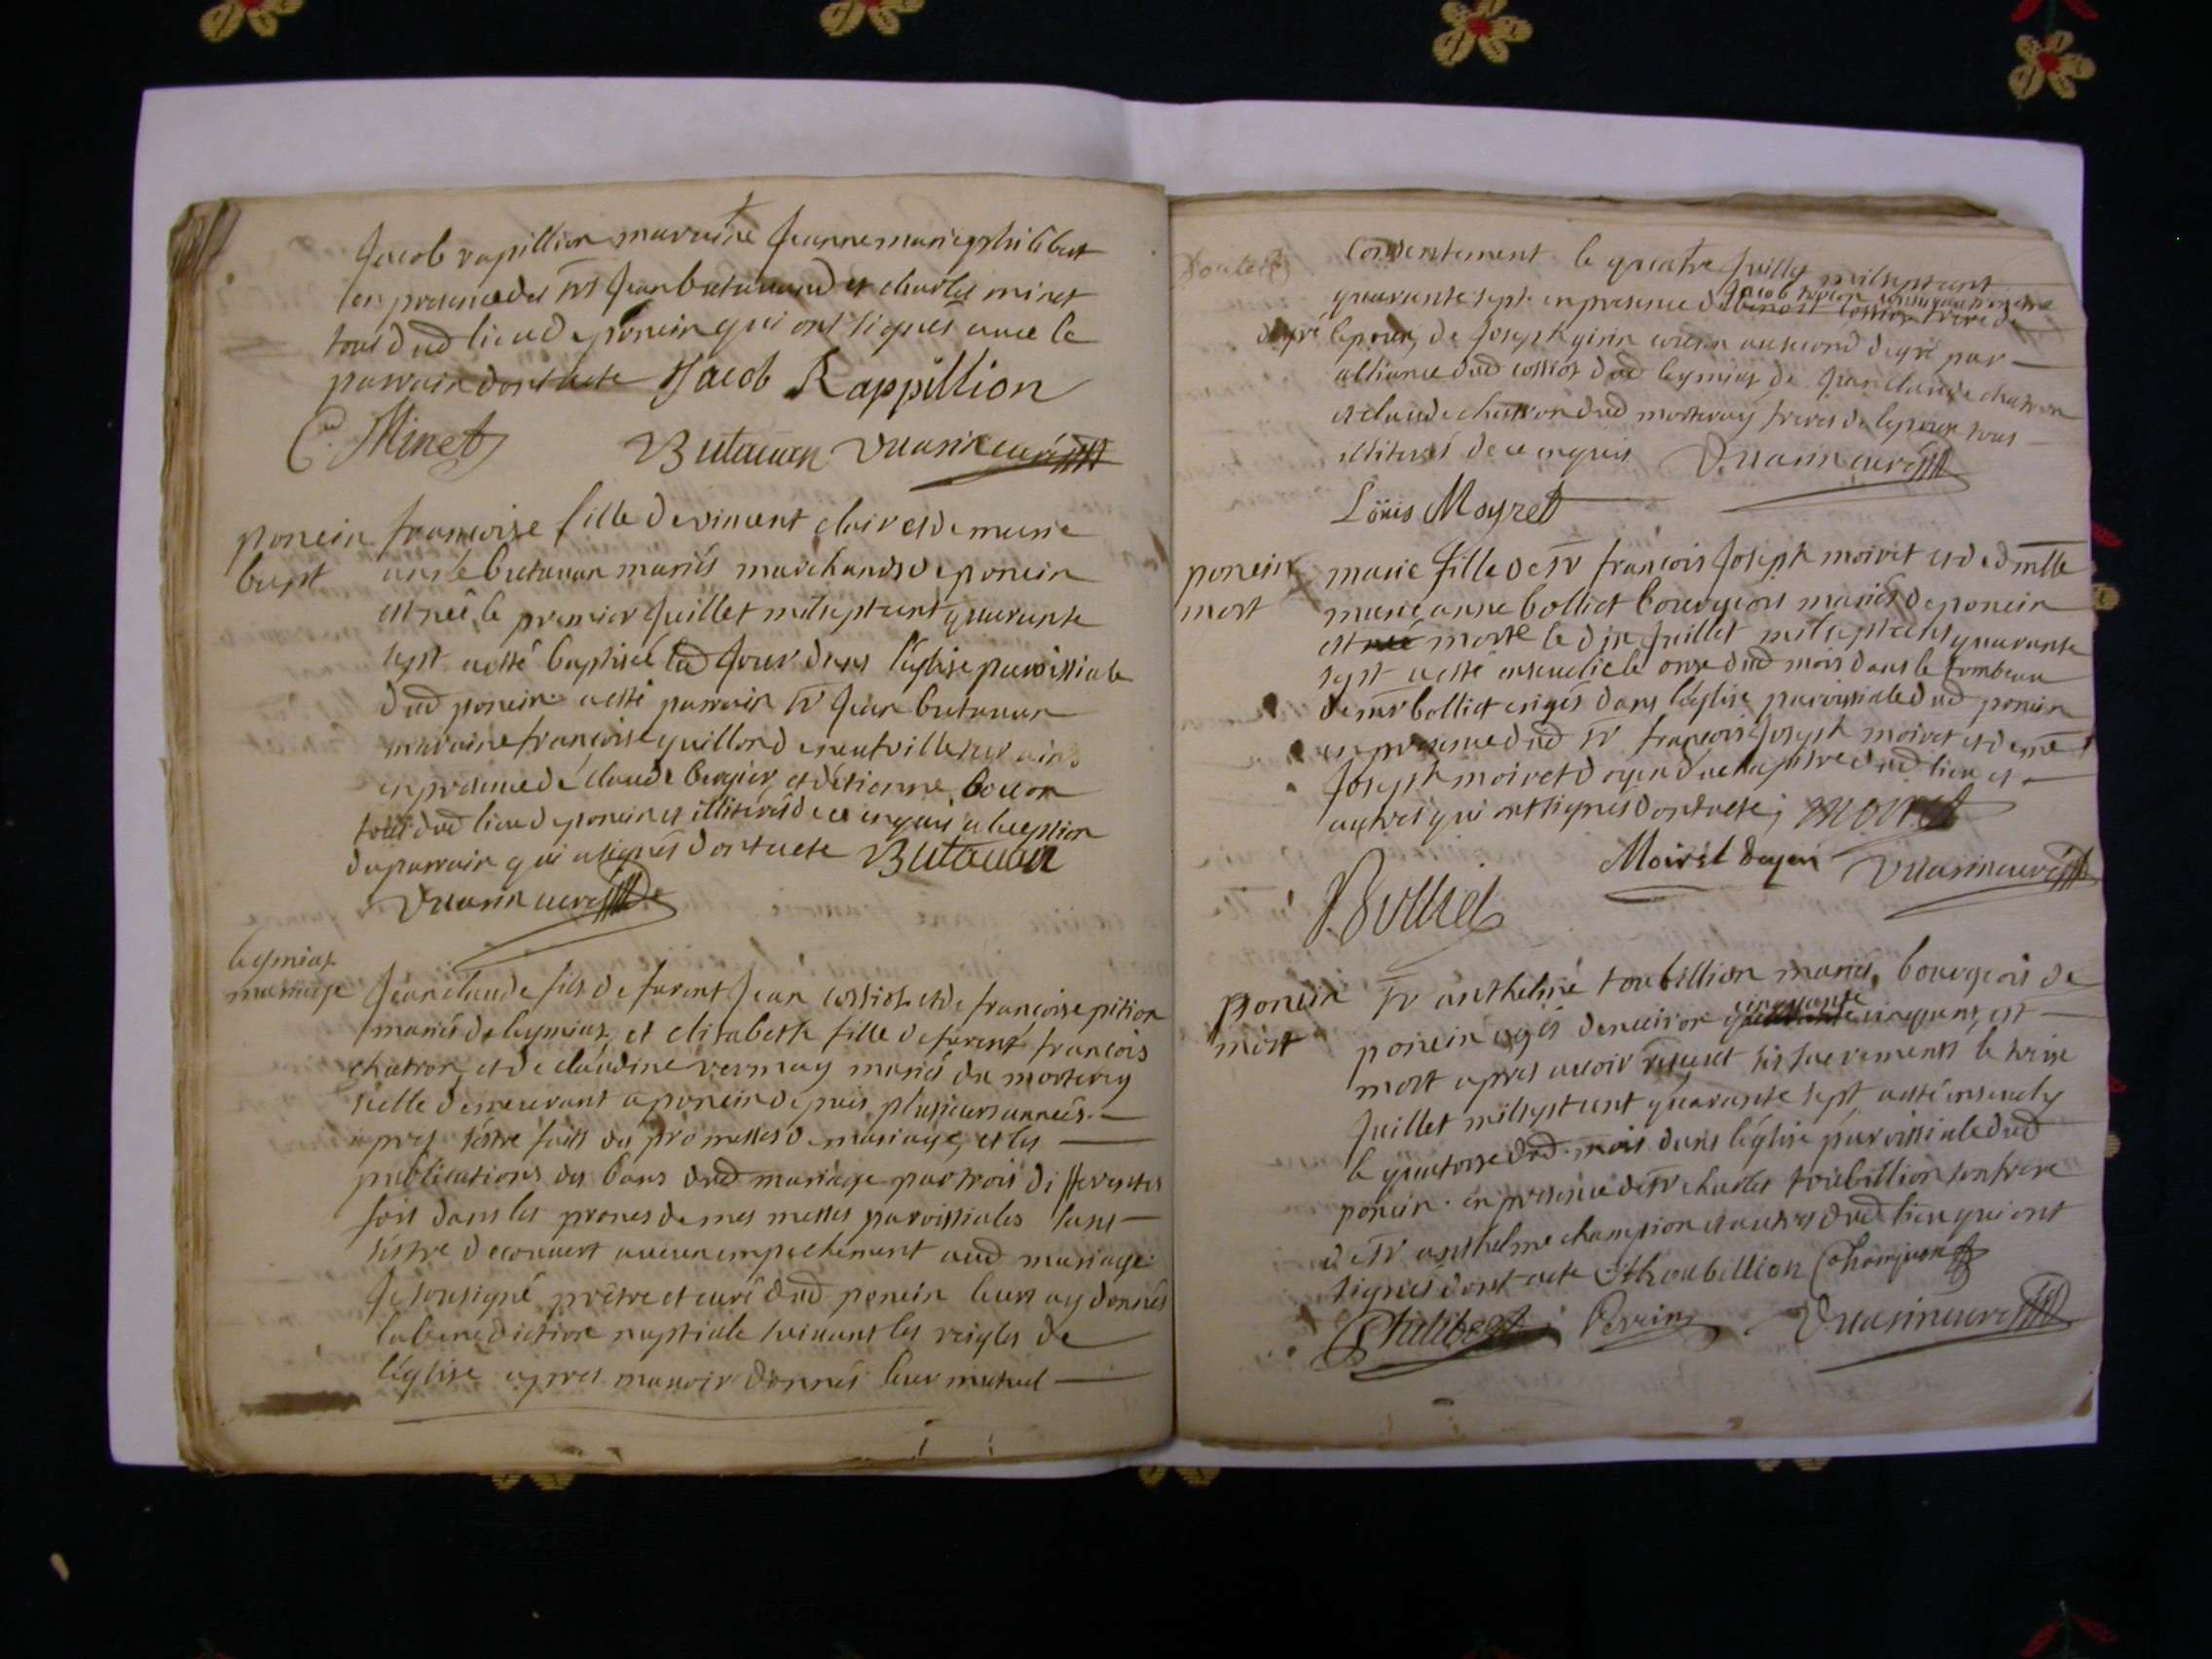 Jacob rapillion maraine Jeanne marie philibert
en presence des srs Jean butavand et charles minet
tous dud lieu de poncin qui ont signés avec le
parrain dont acte Jacob Rappillion
C. Minet Butavan Vuarin curé
poncin
bapt
francoise fille de vincent clair et de marie
butavan mariés marchands de poncin
est née le premier Juillet mil sept cent quarante
sept a esté baptisée led Jour dans l'église paroissiale
dud poncin a esté parrain sr Jean butavan
maraine francoise guillon de neufville sur ains
en presence de claude bergier et d'etienne bocon
tous dud lieu de poncin et illiterés de ce enquis a l'exeption
du parrain qui a signés dont acte Butavan
Vuarin curé
leymiat
mariage
Jean claude fils de furent Jean cossiot et de francoise pition
mariés de leymiat, et elisabeth fille de furent francois
chatron, et de claudine vermay mariés de mortarey
icelle demeurant a poncin depuis plusieurs années
apres s'estre faits des promesses de mariage, et les
publications des bans dud mariage par trois differentes
fois dans les prones de mes messes paroissiales sans
s'estre decouvert aucun empechement aud mariage
Je soussigné prêtre et curé dud poncin leurs ay donnés
la benediction nuptiale suivant les reigles de
l'église apres m'avoir donnés leur mutuel
consentement le quatre Juillet mil sept cent
quarante sept en presence de
degré l'epoux, de Joseph girin cousin au second degré par
alliance dud cossiot dud leymiat de Jean claude chatron
et claude chatron dud mortarey freres de l'epouse tous
illiterés de ce enquis Vuarin curé
Loüis Mayret
poncin
mort
marie fille de sr francois Joseph moiret et de dmlle
marie anne bolliet bourgeois mariés de poncin
est morte le dix Juillet mil sept cent quarante
sept a esté ensevelie le onze dud mois dans le tombeau
de bolliet erigés dans l'église paroissiale dud poncin
en presence dud sr francois Joseph moiret et de
Joseph moiret doyen du chapitre dud lieu et
autres qui ont signés dont acte, moiret
Moirêt doyen Vuarin curé
Bolliet
poncin
mort
sr anthelme toubillion mariés, bourgeois de
poncin agés d'environ cinquante cinq ans, est
mort apres avoir receut ses sacrements le treise
Juillet mil sept cent quarante sept a esté ensevely
le quatorse dud mois dans l'église paroissiale dud
poncin en presence de sr charles toubillion son frere
de sr anthelme champion et autres dud lieu qui ont
signés dont acte thoubillion Champion
Philibert Perrin Vuarin curé